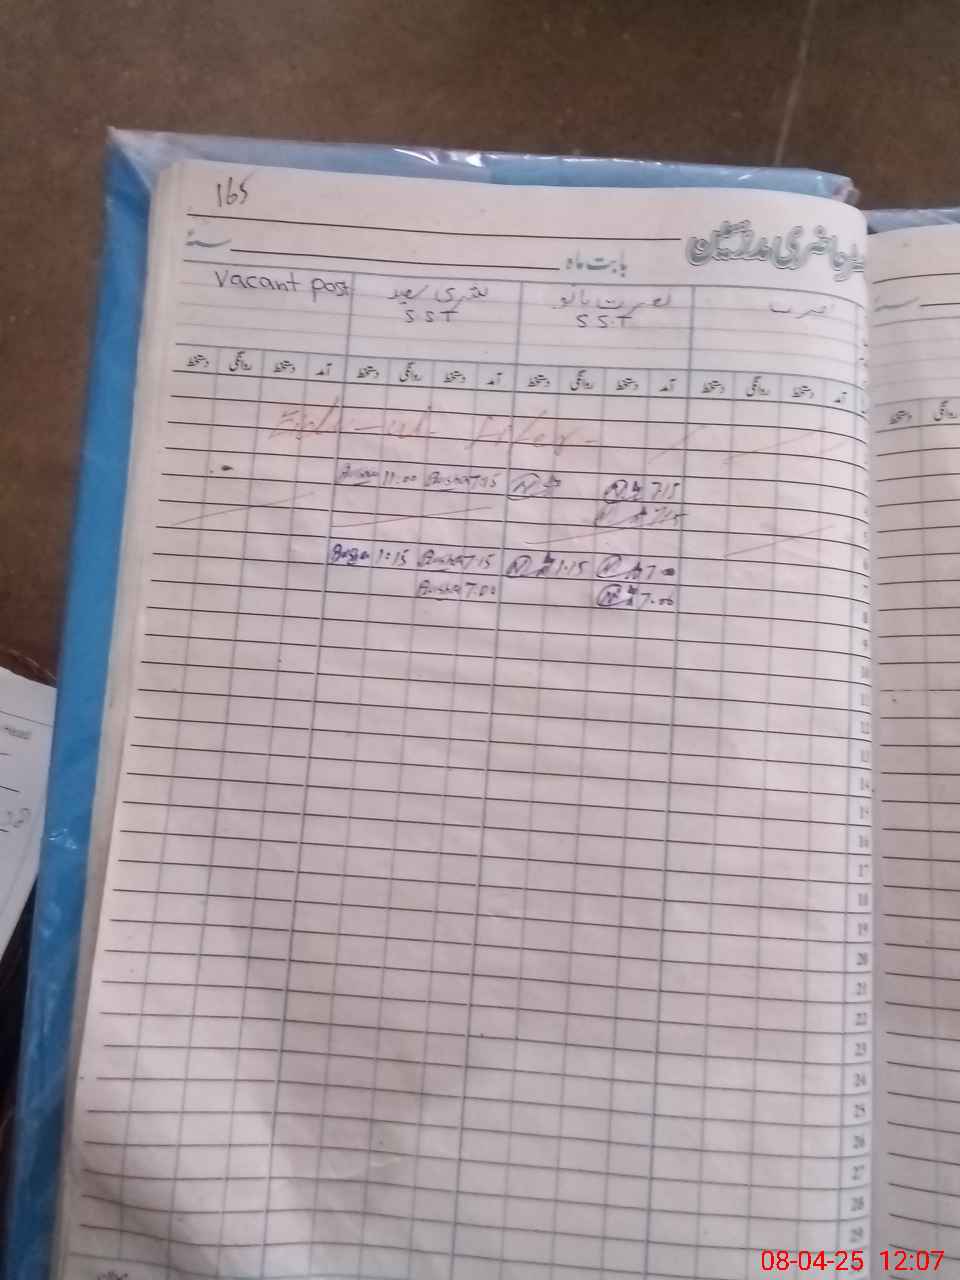 165
حاضری مدرسین
بابت ماہ
سنہ
نصرت بانو
بشری سعید
Vacant post
S.S.T
S S T
آمد دستخط روانگی دستخط آمد دستخط روانگی دستخط آمد دستخط روانگی دستخط آمد دستخط روانگی دستخط
دستخط روانگی
Eid-ul-Fiter
11.00 Bushra 7.15 7.15
7.15
5
1:15 Bushra 7.15 1.15 7.00
6
Bushra 7.00 7.00
7
8
9
10
11
12
13
14
15
16
17
18
19
20
21
22
23
24
25
26
27
28
29
08-04-25 12:07